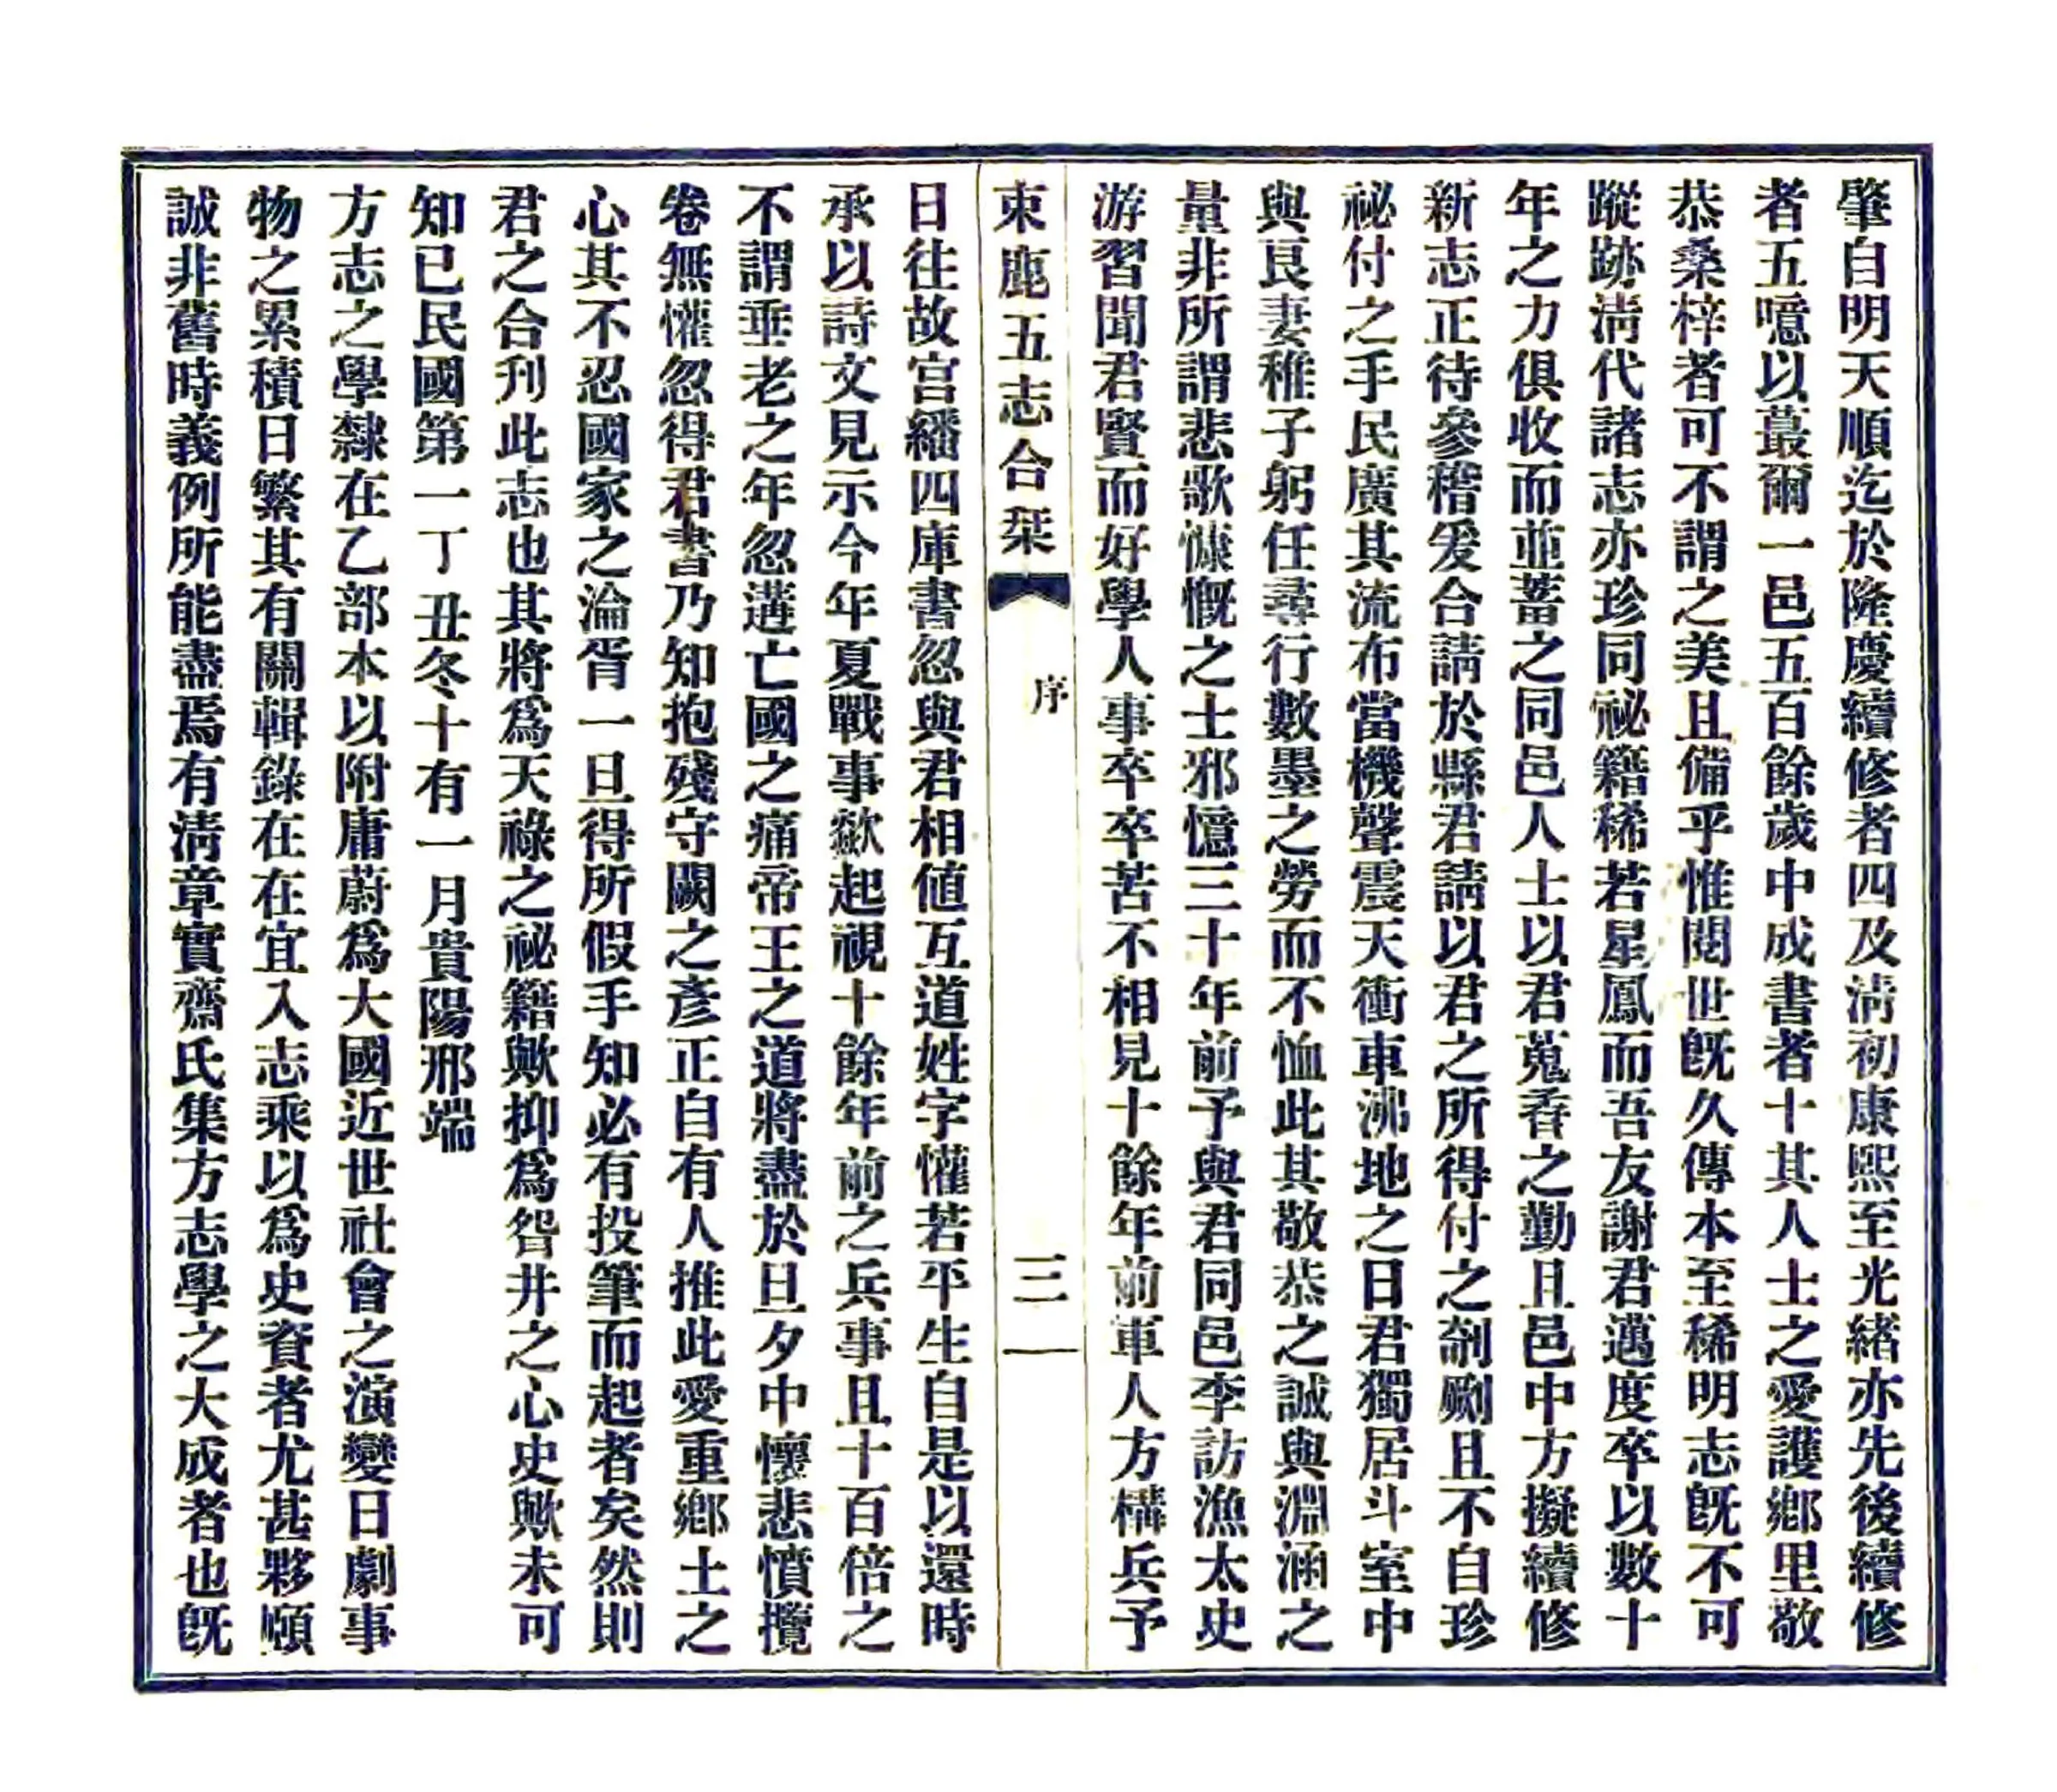 肇自明天順迄於隆慶續修者四及淸初康熙至光緒亦先後續修
者五噫以蕞爾一邑五百餘歲中成書者十其人士之愛護鄕里敬
恭桑梓者可不謂之美且備乎惟閱世旣久傳本至稀明志旣不可
蹤跡淸代諸志亦珍同祕籍稀若星鳳而吾友謝君邁度卒以數十
年之力俱收而並蓄之同邑人士以君蒐香之勤且邑中方擬續修
新志正待參稽爰合請於縣君請以君之所得付之剞劂且不自珍
祕付之手民廣其流布當機聲震天衝車沸地之日君獨居斗室中
與艮妻稚子躬任尋行數墨之勞而不恤此其敬恭之誠與淵涵之
量非所謂悲歌慷慨之士邪憶三十年前予與君同邑李訪漁太史
游習聞君賢而好學人事卒卒苦不相見十餘年前軍人方構兵予
束鹿五志合栞 序 三
日往故宫繙四庫書忽與君相値互道姓字懽若平生自是以還時
承以詩文見示今年夏戰事歘起視十餘年前之兵事且十百倍之
不謂垂老之年忽遘亡國之痛帝王之道將盡於旦夕中懷悲憤攬
卷無懽忽得君書乃知抱殘守闕之彥正自有人推此愛重鄕土之
心其不忍國家之淪胥一旦得所假手知必有投筆而起者矣然則
君之合刋此志也其將爲天祿之祕籍歟抑爲眢井之心史歟未可
知已民國第一丁丑冬十有一月貴陽邢端
方志之學隸在乙部本以附庸蔚爲大國近世社會之演變日劇事
物之累積日繁其有關輯錄在在宜入志乘以爲史資者尤甚夥頤
誠非舊時義例所能盡焉有淸章實齋氏集方志學之大成者也旣